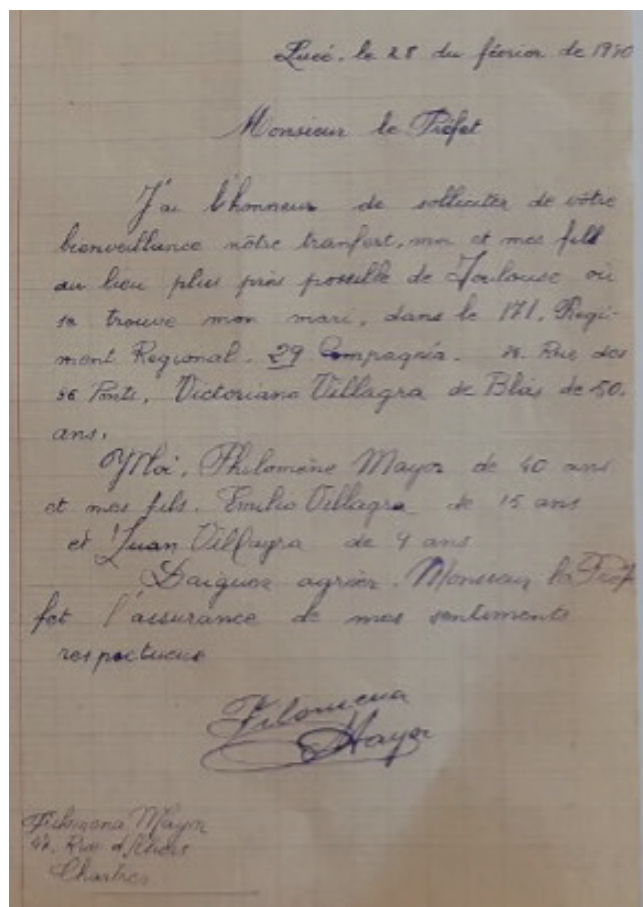 Lucé, le 28 du février de 1940
Monsieur le Préfet
J'ai l'honneur de solliciter de vôtre
bienveillance nôtre tranfert, moi et mes fills
au lieu plus près possible de Toulouse où
se trouve mon mari, dans le 171. Regi-
ment Regional. 29 Compagnia. Rue des
36 Ponts, Victoriano Villagra de Blas de 50.
ans.
Moi, Philomène Mayor de 40 ans
et mes fils. Emilio Villagra de 15 ans
et Juan Villagra de 4 ans
Daignez agrier. Monsieur le Préf
fet l'assurance de mes sentiments
respectueus
Filomena
Mayor
Filomena Mayor
Rue d'Illiers
Chartres